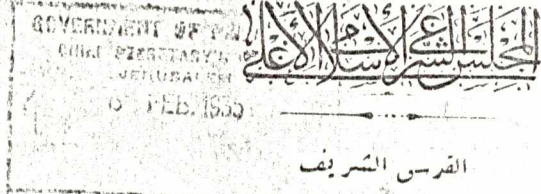 GOVERNMENT OF
CHIEF SECRETARY'S
JERUSALEM
FEB. 1935
المجلس الشرعي الإسلامي الأعلى
القدس الشريف